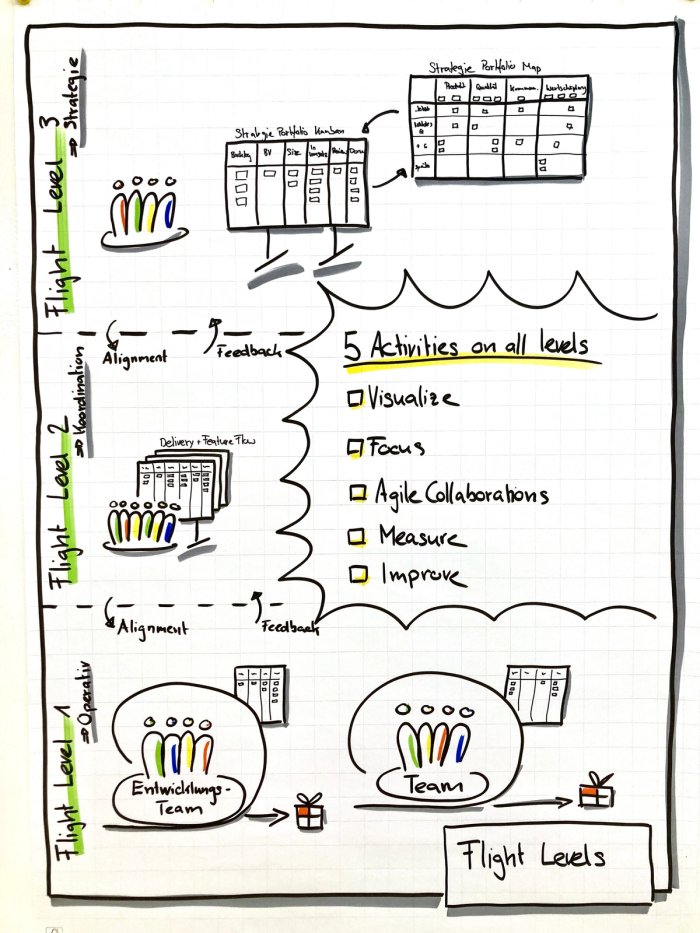 Flight Level 3
⇒ Strategie
Strategie Portfolio Map
Produkt Qualität Kommun. Wertschöpfung
Strategie Portfolio Kanban
Backlog BV Size In Umsetz Review Done
Alignment
Feedback
Flight Level 2
⇒ Koordination
Delivery + Feature Flow
5 Activities on all levels
Visualize
Focus
Agile Collaborations
Measure
Improve
Alignment
Feedback
Flight Level 1
⇒ Operativ
Entwicklungs-
Team
Team
Flight Levels